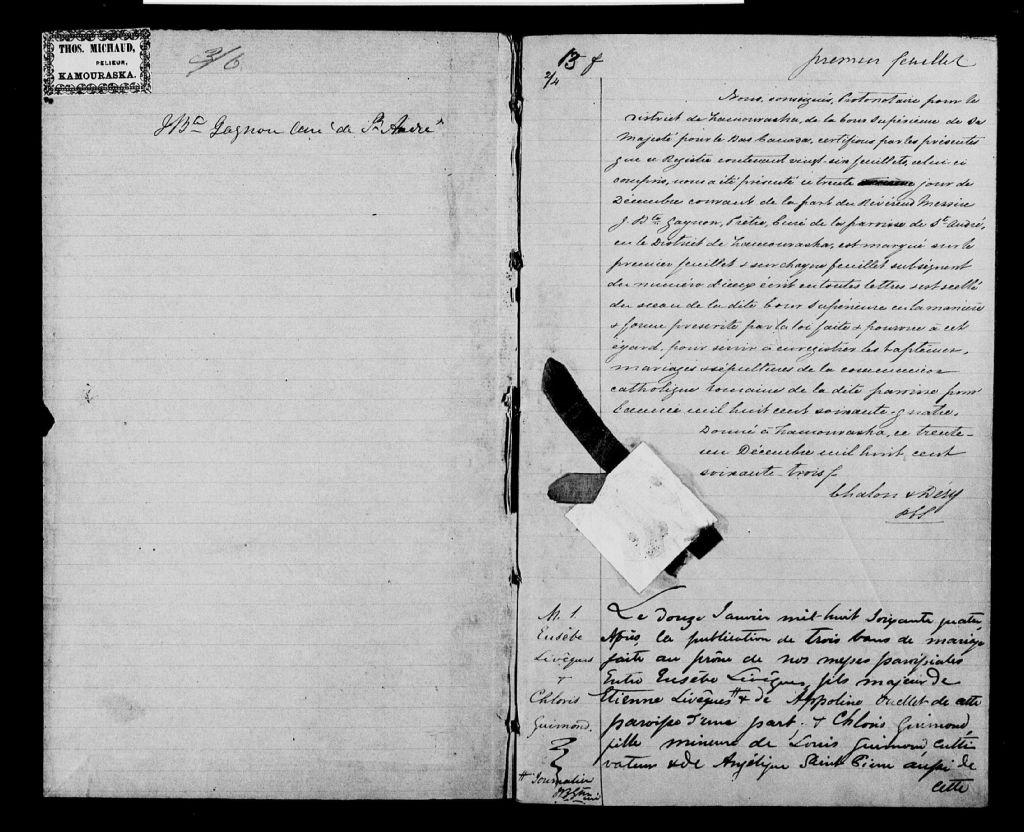 THOS. MICHAUD,
RELIEUR,
KAMOURASKA.
3/6
J Bte Gagnon Curé de St André
13 f
2/4
premier feuillet
Nous, soussignés, Protonotaire pour le
District de Kamouraska, de la Cour Supérieure de Sa
Majesté pour le Bas Canada, certifions par les présentes
que ce Registre contenant vingt-six feuillets, celui-ci
compris, nous a été présenté ce trente jour de
Décembre courant de la part du Révérend Messire
J. Bte Gagnon, Prêtre, Curé de la paroisse de St André,
en le District de Kamouraska, est marqué sur le
premier feuillet & sur chaque feuillet subséquent
du numéro d'iceux écrit en toutes lettres & est scellé
du sceau de la dite Cour Supérieure en la manière
& forme prescrite par la loi faite & pourvue à cet
égard, pour servir à enregistrer les baptêmes,
mariages & sépultures de la communion
catholique Romaine de la dite paroisse pour
l'année mil huit cent soixante-quatre.
Donné à Kamouraska, ce trente-
un Décembre mil huit cent
soixante-trois
Chalou & Déry
PCS
M. 1.
Eusèbe
Livêques
&
Chloris
Guimond.
# Journalier
Le douze Janvier mil-huit Soixante quatre
Après, la publication de trois bans de mariage
faite au prône de nos messes paroissiales
Entre Eusèbe Livêques, fils majeur de
Etienne Livêques # & de Appoline Ouellet de cette
paroisse d'une part. & Chloris Guimond,
fille mineure de Louis Guimond Culti
vateur & de Angélique Saint Pierre aussi de
cette